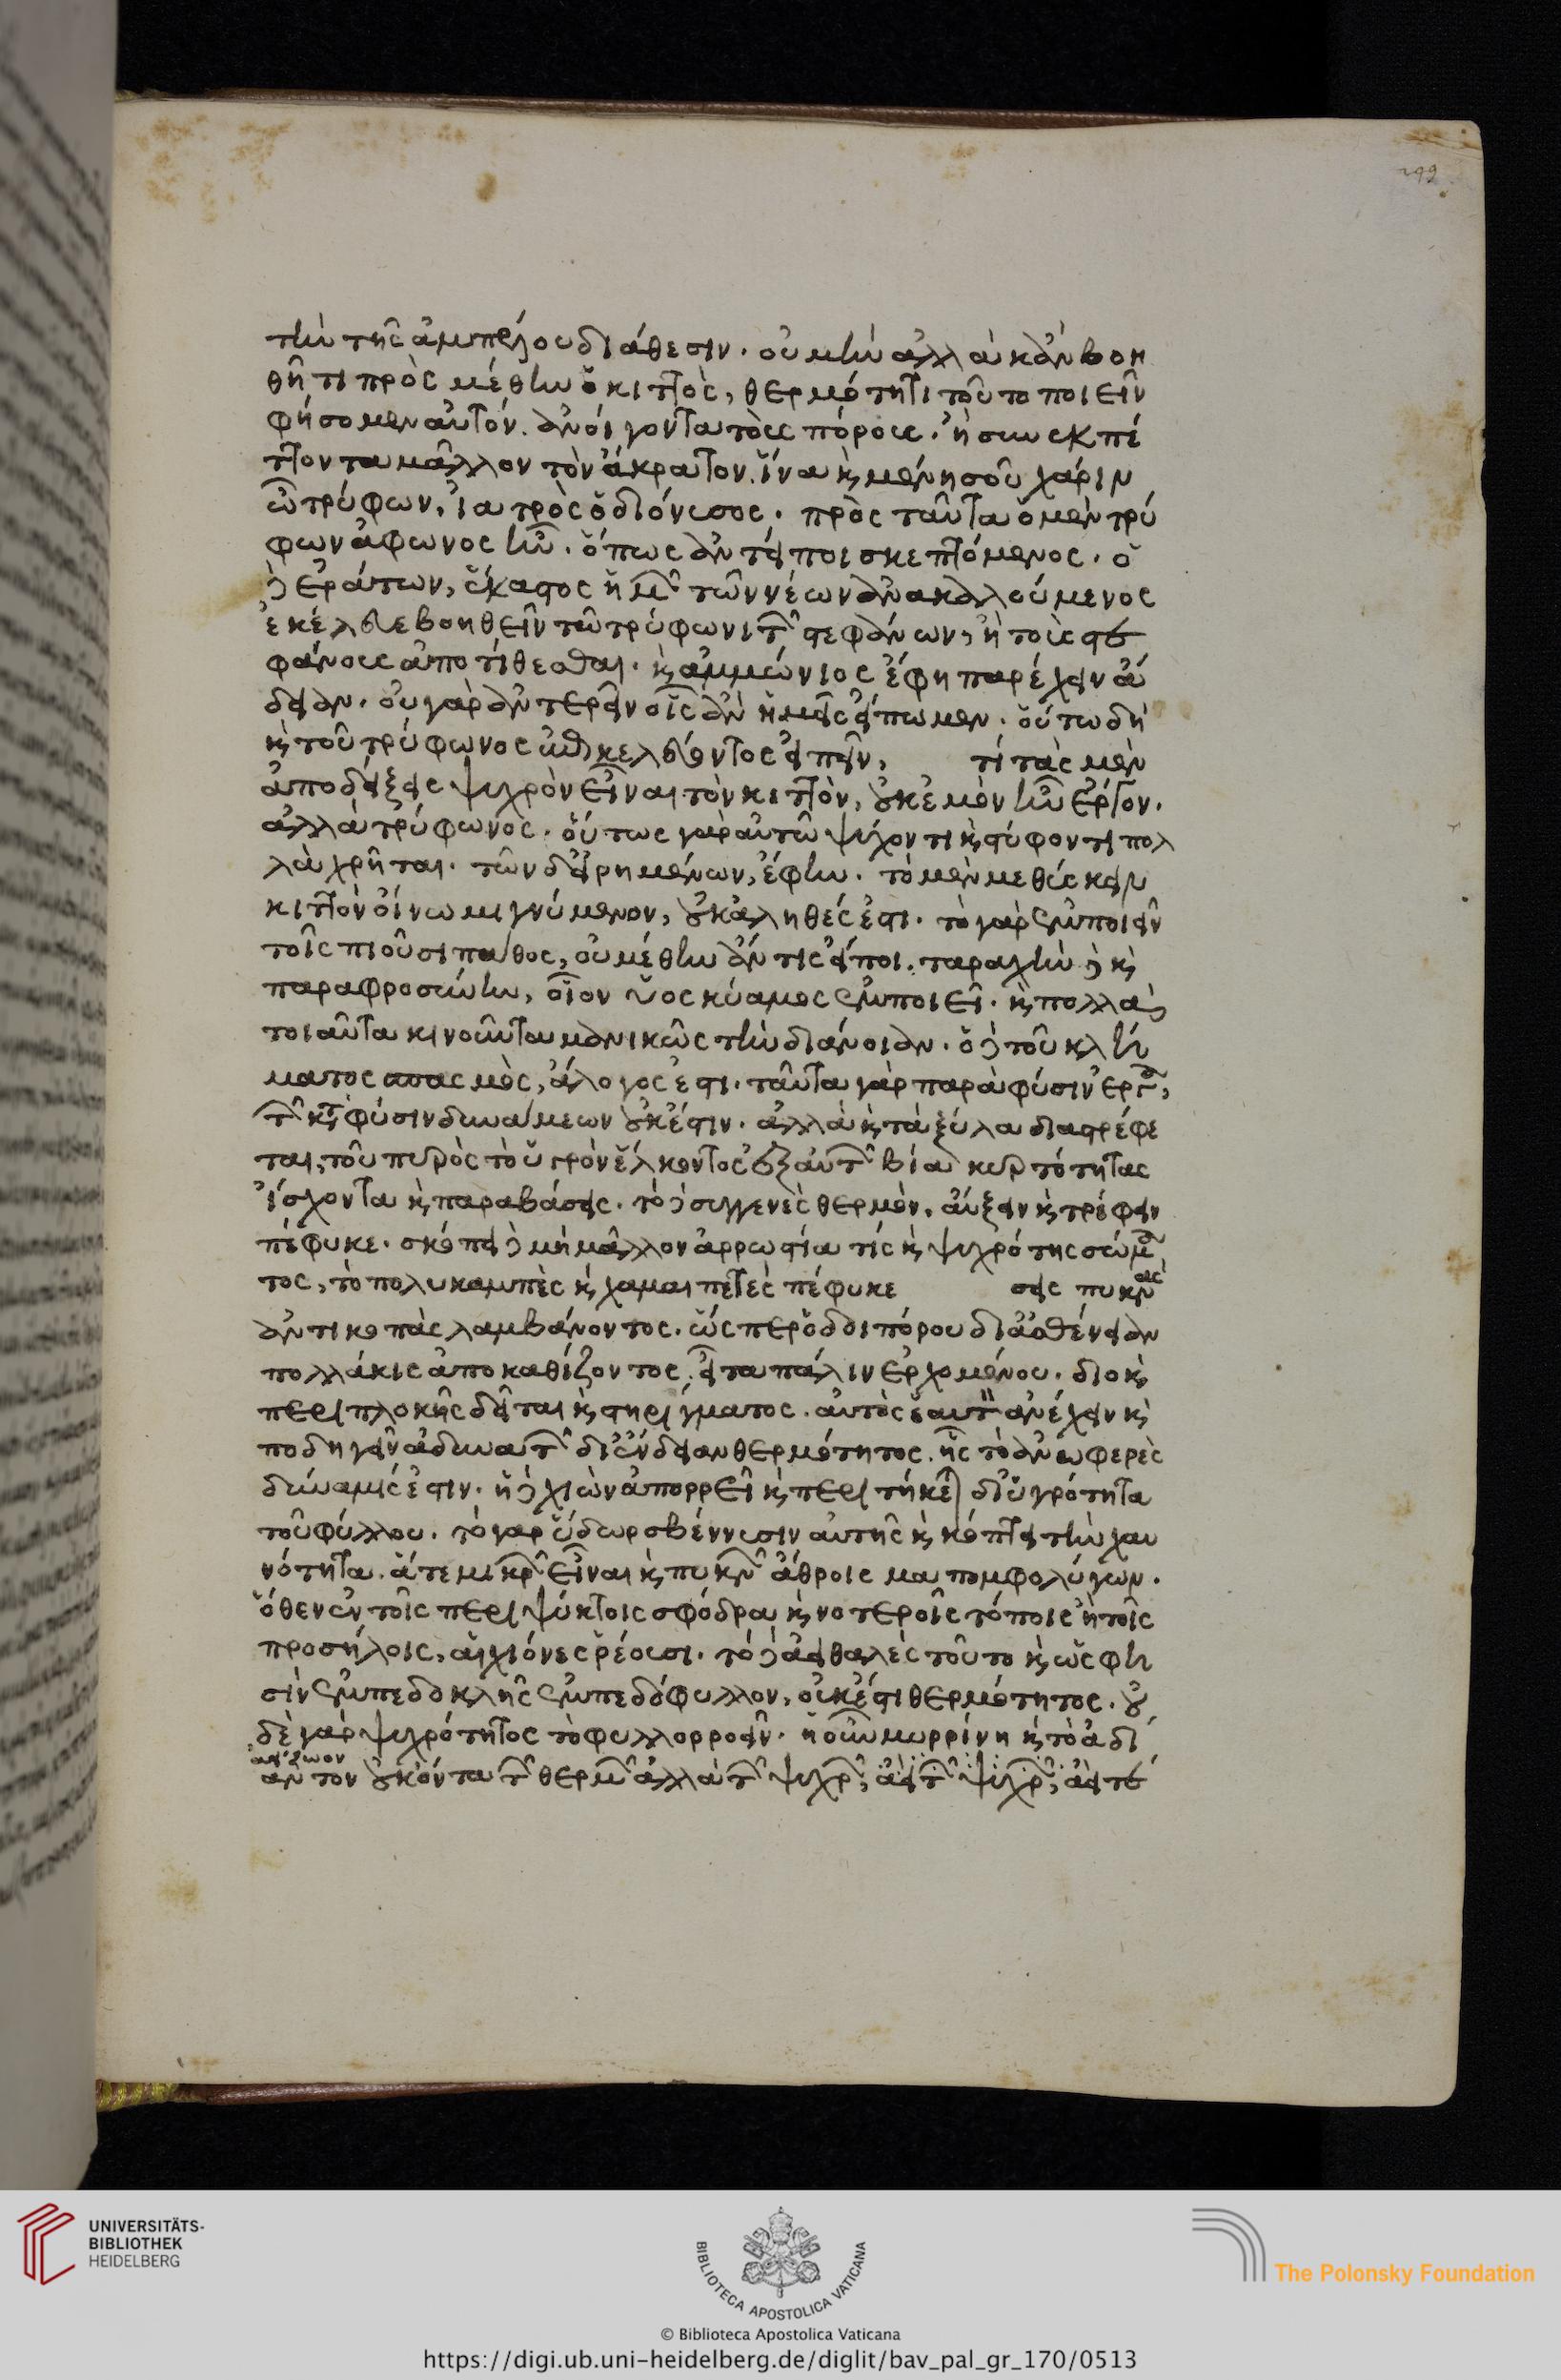 299
τὴν τῆς ἀμπέλου διάθεσιν. οὐ μὴν ἀλλὰ κἂν βοη
θῆ τι πρὸς μέθην ὁ κιττὸς, θερμότητι τοῦτο ποιεῖν
φήσομεν αὐτόν. ἀνοίγοντα τοὺς πόρους. ἢ συνεκπέ
ττοντα μᾶλλον τὸν ἄκρατον. ἵνα κὶ μένη σοῦ χάριν
ὦ τρύφων, ἰατρὸς ὁ διόνυσος. πρὸς ταῦτα ὁ μὲν τρύ
φων ἄφωνος ἦν. ὅπως ἀντείποι σκεπτόμενος. ὁ
δὲ ἐράτων, ἕκαστος ἡμῶν τῶν νέων ἀνακαλούμενος
ἐκέλευε βοηθεῖν τῶ τρύφωνι τῶν στεφάνων, ἢ τοὺς στε
φάνους ἀποτίθεσθαι. κὶ ἀμμώνιος ἔφη παρέχειν ἄ
δειαν. οὐ γὰρ ἀντερεῖν οἷς ἂν ἡμεῖς εἴπωμεν. οὕτω δὴ
κὶ τοῦ τρύφωνος ἐπικελεύοντος εἰπεῖν, τί τὰς μὲν
ἀποδείξεις ψυχρὸν εἶναι τὸν κιττὸν, οὐκ ἐμὸν ἦν ἔργον.
ἀλλὰ τρύφωνος. οὕτως γὰρ αὐτῶ ψύχοντι κὶ στύφοντι πολ
λὰ χρῆται. τῶν δ' εἰρημένων, ἔφην. τὸ μὲν μεθύσκειν
κιττὸν οἴνω μιγνύμενον, οὐκ ἀληθές ἐστι. τὸ γὰρ ἐμποιεῖν
τοῖς πιοῦσι πάθος, οὐ μέθην ἄν τις εἴποι. ταραχὴν δὲ κὶ
παραφροσύνην, οἷον ὑοσκύαμος ἐμποιεῖ. κὶ πολλὰ
τοιαῦτα κινοῦντα μανικῶς τὴν διάνοιαν. ὁ δὲ τοῦ κλή
ματος σπασμὸς, ἄλογός ἐστι. ταῦτα γὰρ παρὰ φύσιν ἔργα,
τῶν κατὰ φύσιν δυνάμεων οὐκ ἔστιν. ἀλλὰ κὶ τὰ ξύλα διαστρέφε
ται, τοῦ πυρὸς τὸ ὑγρὸν ἕλκοντος ἐξ αὐτῶν βία κυρτότητας
ἴσχοντα κὶ παραβάσεις. τὸ δὲ συγγενὲς θερμὸν, αὔξειν κὶ τρέφειν
πέφυκε. σκόπει δὲ μὴ μᾶλλον ἀρρωστία τίς κὶ ψυχρότης σώμα
τος, τὸ πολυκαμπὲς κὶ χαμαιπετὲς πέφυκε σεις πυκνὰς
ἀντικοπὰς λαμβάνοντος. ὥσπερ ὁδοιπόρου δι' ἀσθένειαν
πολλάκις ἀποκαθίζοντος. εἶτα πάλιν ἐρχομένου. διο κὶ
περιπλοκῆς δεῖται κὶ στηρίγματος. αὐτὸς ἑαυτὸν ἀνέχειν κὶ
ποδηγεῖν ἀδυνατῶν δι' ἔνδειαν θερμότητος. ἧς τὸ ἀνωφερὲς
δύναμίς ἐστιν. ἡ δὲ χιὼν ἀπορρεῖ κὶ περιτήκεται δι' ὑγρότητα
τοῦ φύλλου. τὸ γὰρ ὕδωρ σβέννυσιν αὐτῆς κὶ κόπτει τὴν χαυ
νότητα. ἅτε μικρῶν εἶναι κὶ πυκνῶν ἄθροισμα πομφολύγων.
ὅθεν ἐν τοῖς περιψύκτοις σφόδρα κὶ νοτεροῖς τόποις ἢ τοῖς
προσήλοις, αἱ χιόνες ῥέουσι. τὸ δὲ ἀειθαλὲς τοῦτο κὶ ὥς φη
σὶν ἐμπεδοκλῆς ἐμπεδόφυλλον, οὐκ ἔστι θερμότητος. οὐ
δὲ γὰρ ψυχρότητος τὸ φυλλορροεῖν. ἡ οὖν μυρρίνη κὶ τὸ ἀδί
ἀείζωον
αντον οὐκ ὄντα τῶν θερμῶν ἀλλὰ τῶν ψυχρῶν, ἀεὶ τῶν ψυχρῶν, ἀεὶ τέ
UNIVERSITÄTS-
BIBLIOTHEK
HEIDELBERG
BIBLIOTECA APOSTOLICA VATICANA
The Polonsky Foundation
© Biblioteca Apostolica Vaticana
https://digi.ub.uni-heidelberg.de/diglit/bav_pal_gr_170/0513